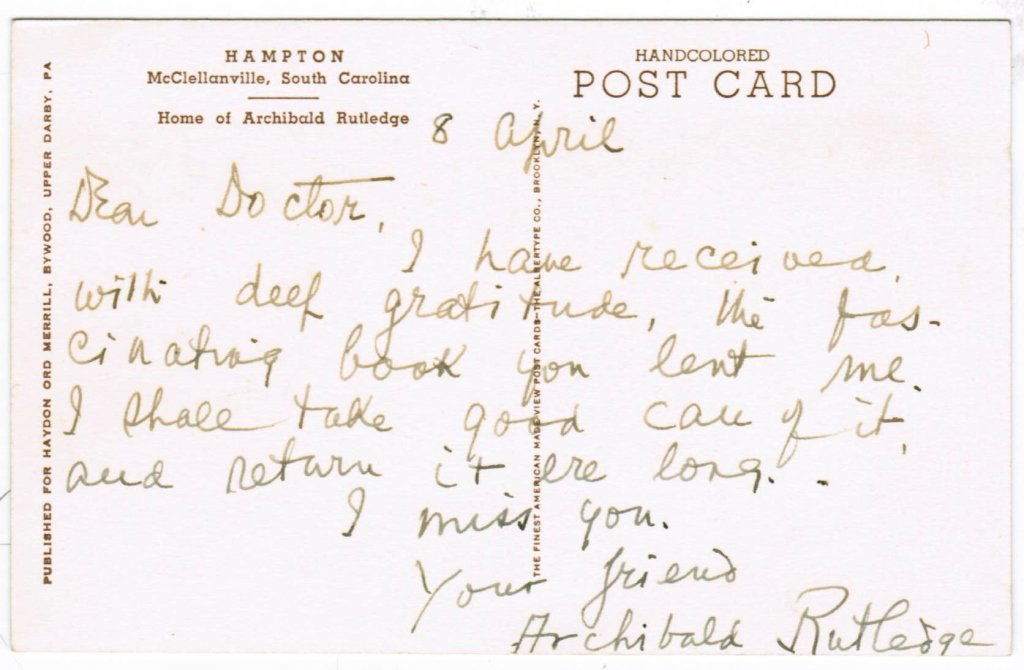 HAMPTON
McClellanville, South Carolina
Home of Archibald Rutledge
HANDCOLORED
POST CARD
PUBLISHED FOR HAYDON ORD MERRILL, BYWOOD, UPPER DARBY, PA
THE FINEST AMERICAN MADE VIEW POST CARDS—THE ALBERTYPE CO., BROOKLYN, N. Y.
8 April
Dear Doctor,
I have received,
with deep gratitude, the fas-
cinating book you lent me.
I shall take good care of it,
and return it ere long. -
I miss you.
Your friend
Archibald Rutledge